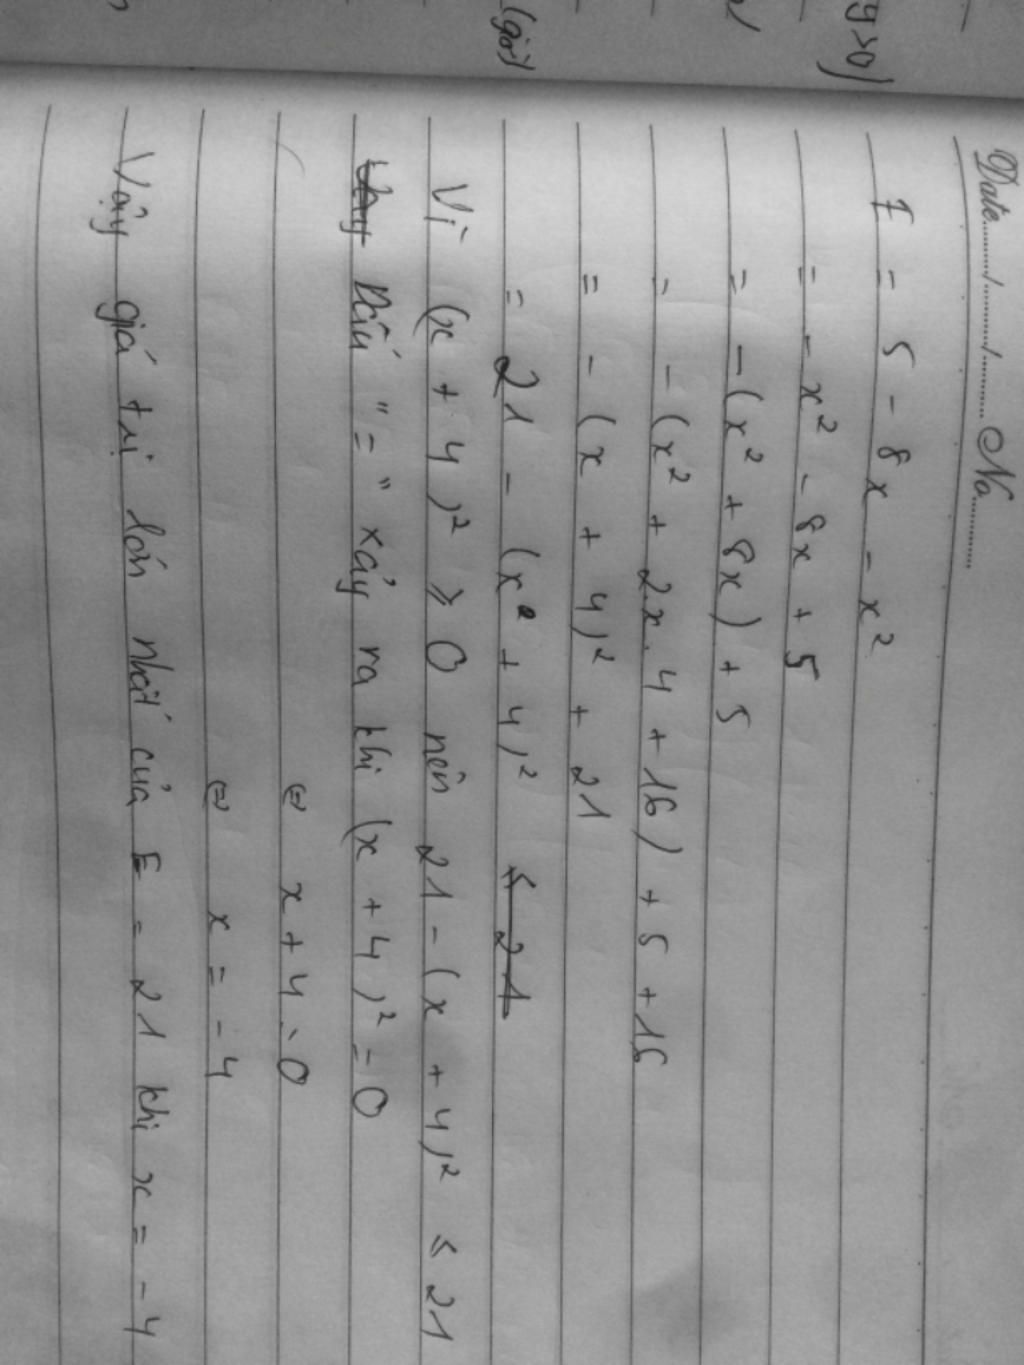 y>0)
(giờ)
Date....../....../...... No..........
E = 5 - 8x - x²
= - x² - 8x + 5
= -(x² + 8x) + 5
= -(x² + 2.x.4 + 16) + 5 + 16
= - (x + 4)² + 21
= 21 - (x + 4)² ≤ 21
Vì (x + 4)² ≥ 0 nên 21 - (x + 4)² ≤ 21
Vậy Dấu "=" xảy ra khi (x + 4)² = 0
⇔ x + 4 = 0
⇔ x = - 4
Vậy giá trị lớn nhất của E = 21 khi x = - 4